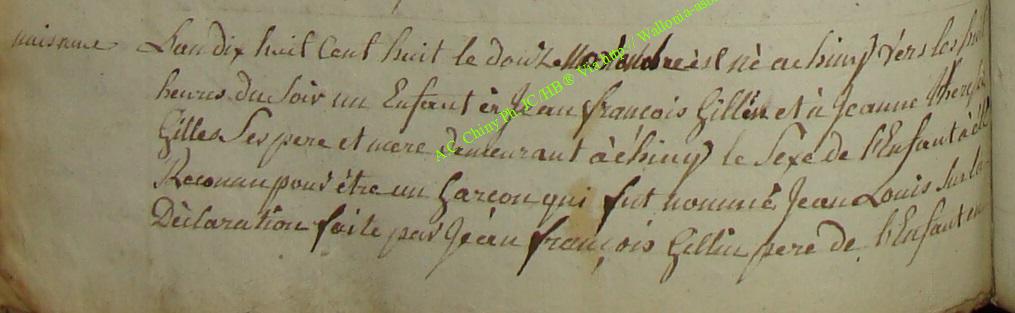 naissance
Lan dix huit Cent huit le douze est né a chiny vers les huit
heures du Soir un Enfant à Jean françois Gillin et à Jeanne Therese
Gilles Ses pere et mere demeurant à chiny le Sexe de l'Enfant à été
Reconnu pour être un Garcon qui fut nommé Jean Louis Sur la
Déclaration faite par Jean françois Gillin pere de l'Enfant en
A.C. Chiny Ph JC /HB® Via http:// Wallonia-aso